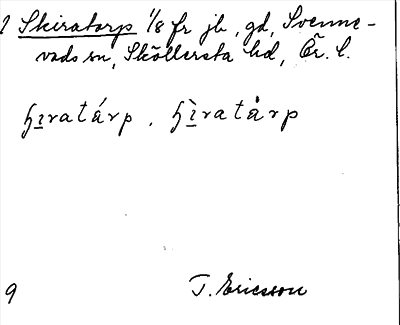 Skiratorp 1/8 fr jb, gd, Svenne-
vads sn, Sköllersta hd, Ör. l.
ɧɪratárp . ɧɪ̀ratårp
9 T. Ericsson